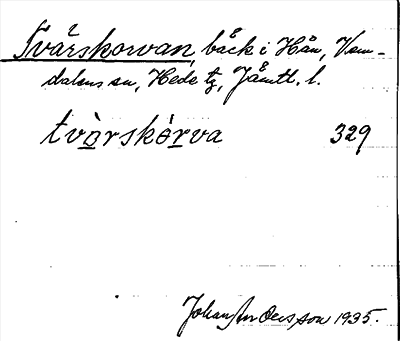 Tvärskorvan, bäck i Hån, Vem-
dalens sn, Hede tg, Jämtl. l.
tvòrskórva 329
Johan Andersson 1935.